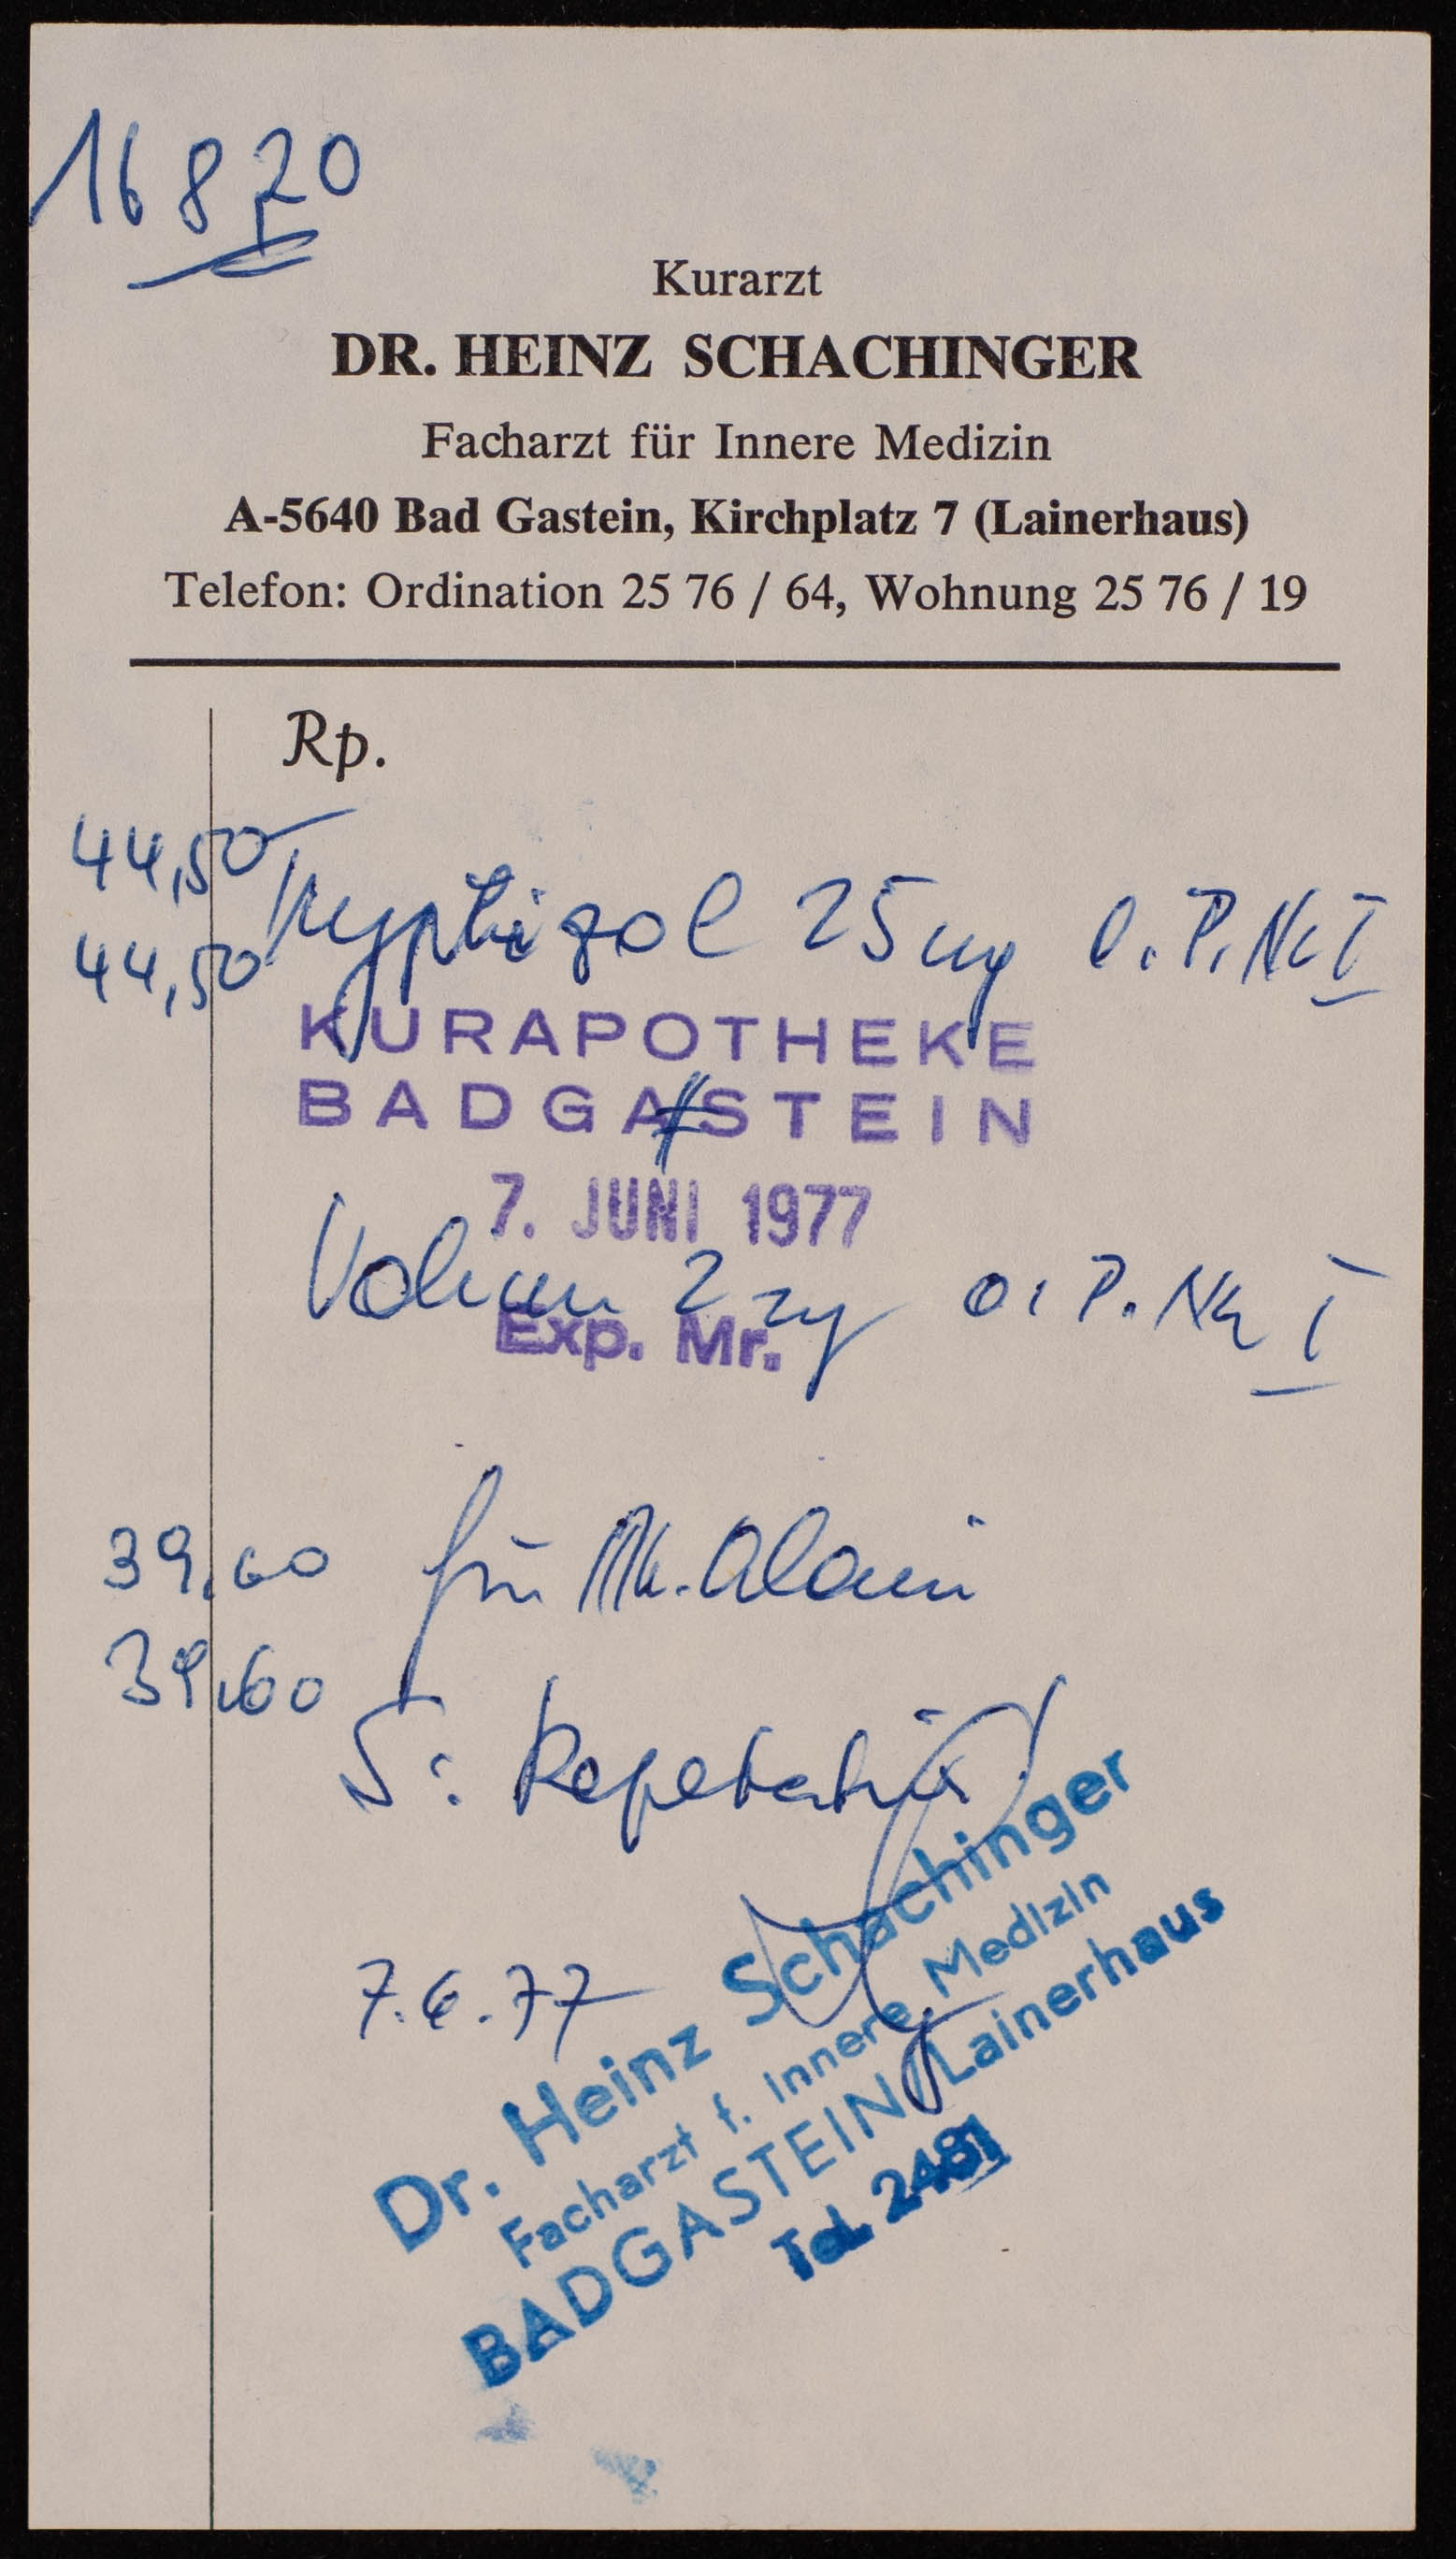 168 20
Kurarzt
DR. HEINZ SCHACHINGER
Facharzt für Innere Medizin
A-5640 Bad Gastein, Kirchplatz 7 (Lainerhaus)
Telefon: Ordination 25 76 / 64, Wohnung 25 76 / 19
Rp.
44,50
Tryptizol 25 mg O.P. No I
44,50
KURAPOTHEKE
BADGASTEIN
7. JUNI 1977
Valium 2 mg O.P. No I
Exp. Mr.
39,60 für
39,60
S:
7.6.77
Dr. Heinz Schachinger
Facharzt f. Innere Medizin
BADGASTEIN Lainerhaus
Tel. 2481